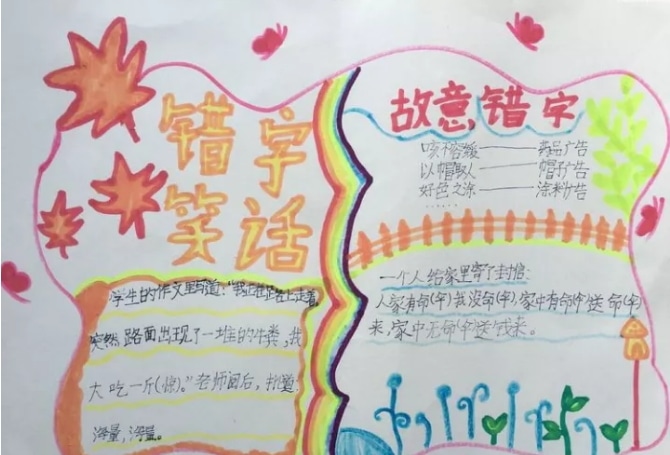 错字
笑话
学生的作文里写道:“我正在路上走着,
突然,路面出现了一堆的牛粪,我
大吃一斤(惊)。”老师阅后,批道:
海量,海量。
故意错字
咳不容缓——药品广告
以帽取人——帽子广告
好色之涂——涂料广告
......
一个人给家里寄了封信:
人家有命(伞)我没命(伞),家中有命(伞)送命(伞)
来,家中无命(伞)送钱来。